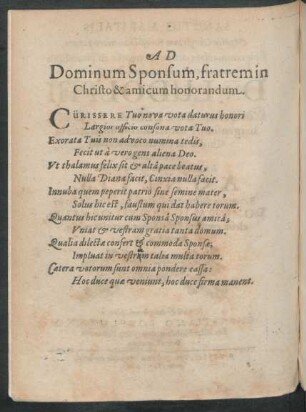 AD
Dominum Sponsum, fratrem in
Christo & amicum honorandum.
CŪRISSERE Tuo nova vota daturus honori
Largior officio consona vota Tuo.
Exorata Tuis non advoco numina tedis,
Fecit ut à vero gens aliena Deo.
Vt thalamus felix sit & altâ pace beatus,
Nulla Diana facit, Cinxia nulla facit.
Innuba quem peperit patrio sine semine mater,
Solus hic est, faustum qui dat habere torum.
Quantus hic unitur cum Sponsâ Sponsus amicâ;
Vniat & vestram gratia tanta domum.
Qualia dilectæ confert & commoda Sponsæ,
Impluat in vestrum talia multa torum.
Cætera votorum sunt omnia pondere cassa:
Hoc duce quæ veniunt, hoc duce firma manent.